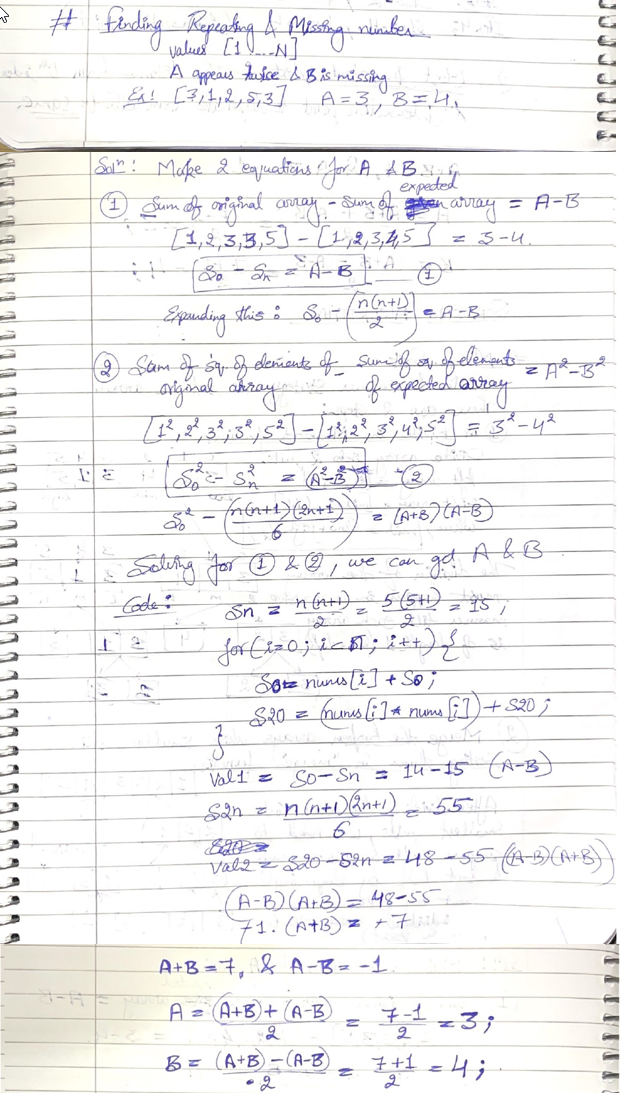 # Finding Repeating & Missing number
values [1....N]
A appears twice & B is missing
Ex: [3,1,2,5,3] A=3, B=4.
Solⁿ: Make 2 equations for A & B.
① Sum of original array - Sum of expected array = A-B
[1,2,3,3,5] - [1,2,3,4,5] = 3-4.
S₀ - Sn = A-B ①
Expanding this: S₀ - (n(n+1)/2) = A-B
② Sum of sq of elements of original array - Sum of sq of elements of expected array = A²-B²
[1²,2²,3²,3²,5²] - [1²,2²,3²,4²,5²] = 3²-4²
S₀² - Sn² = (A²-B²) -②
S₀² - (n(n+1)(2n+1)/6) = (A+B)(A-B)
Solving for ① & ②, we can get A & B
Code: Sn = n(n+1)/2 = 5(5+1)/2 = 15;
for(i=0; i<n; i++){
S0= nums[i] + S0;
S20 = (nums[i]* nums[i]) + S20;
}
Val1 = S0-Sn = 14-15 (A-B)
S2n = n(n+1)(2n+1)/6 = 55
Val2 = S20-S2n = 48-55 (A-B)(A+B)
(A-B)(A+B) = 48-55
71. (A+B) = +7
A+B=7, & A-B=-1
A = (A+B)+(A-B)/2 = 7-1/2 = 3;
B = (A+B)-(A-B)/2 = 7+1/2 = 4;